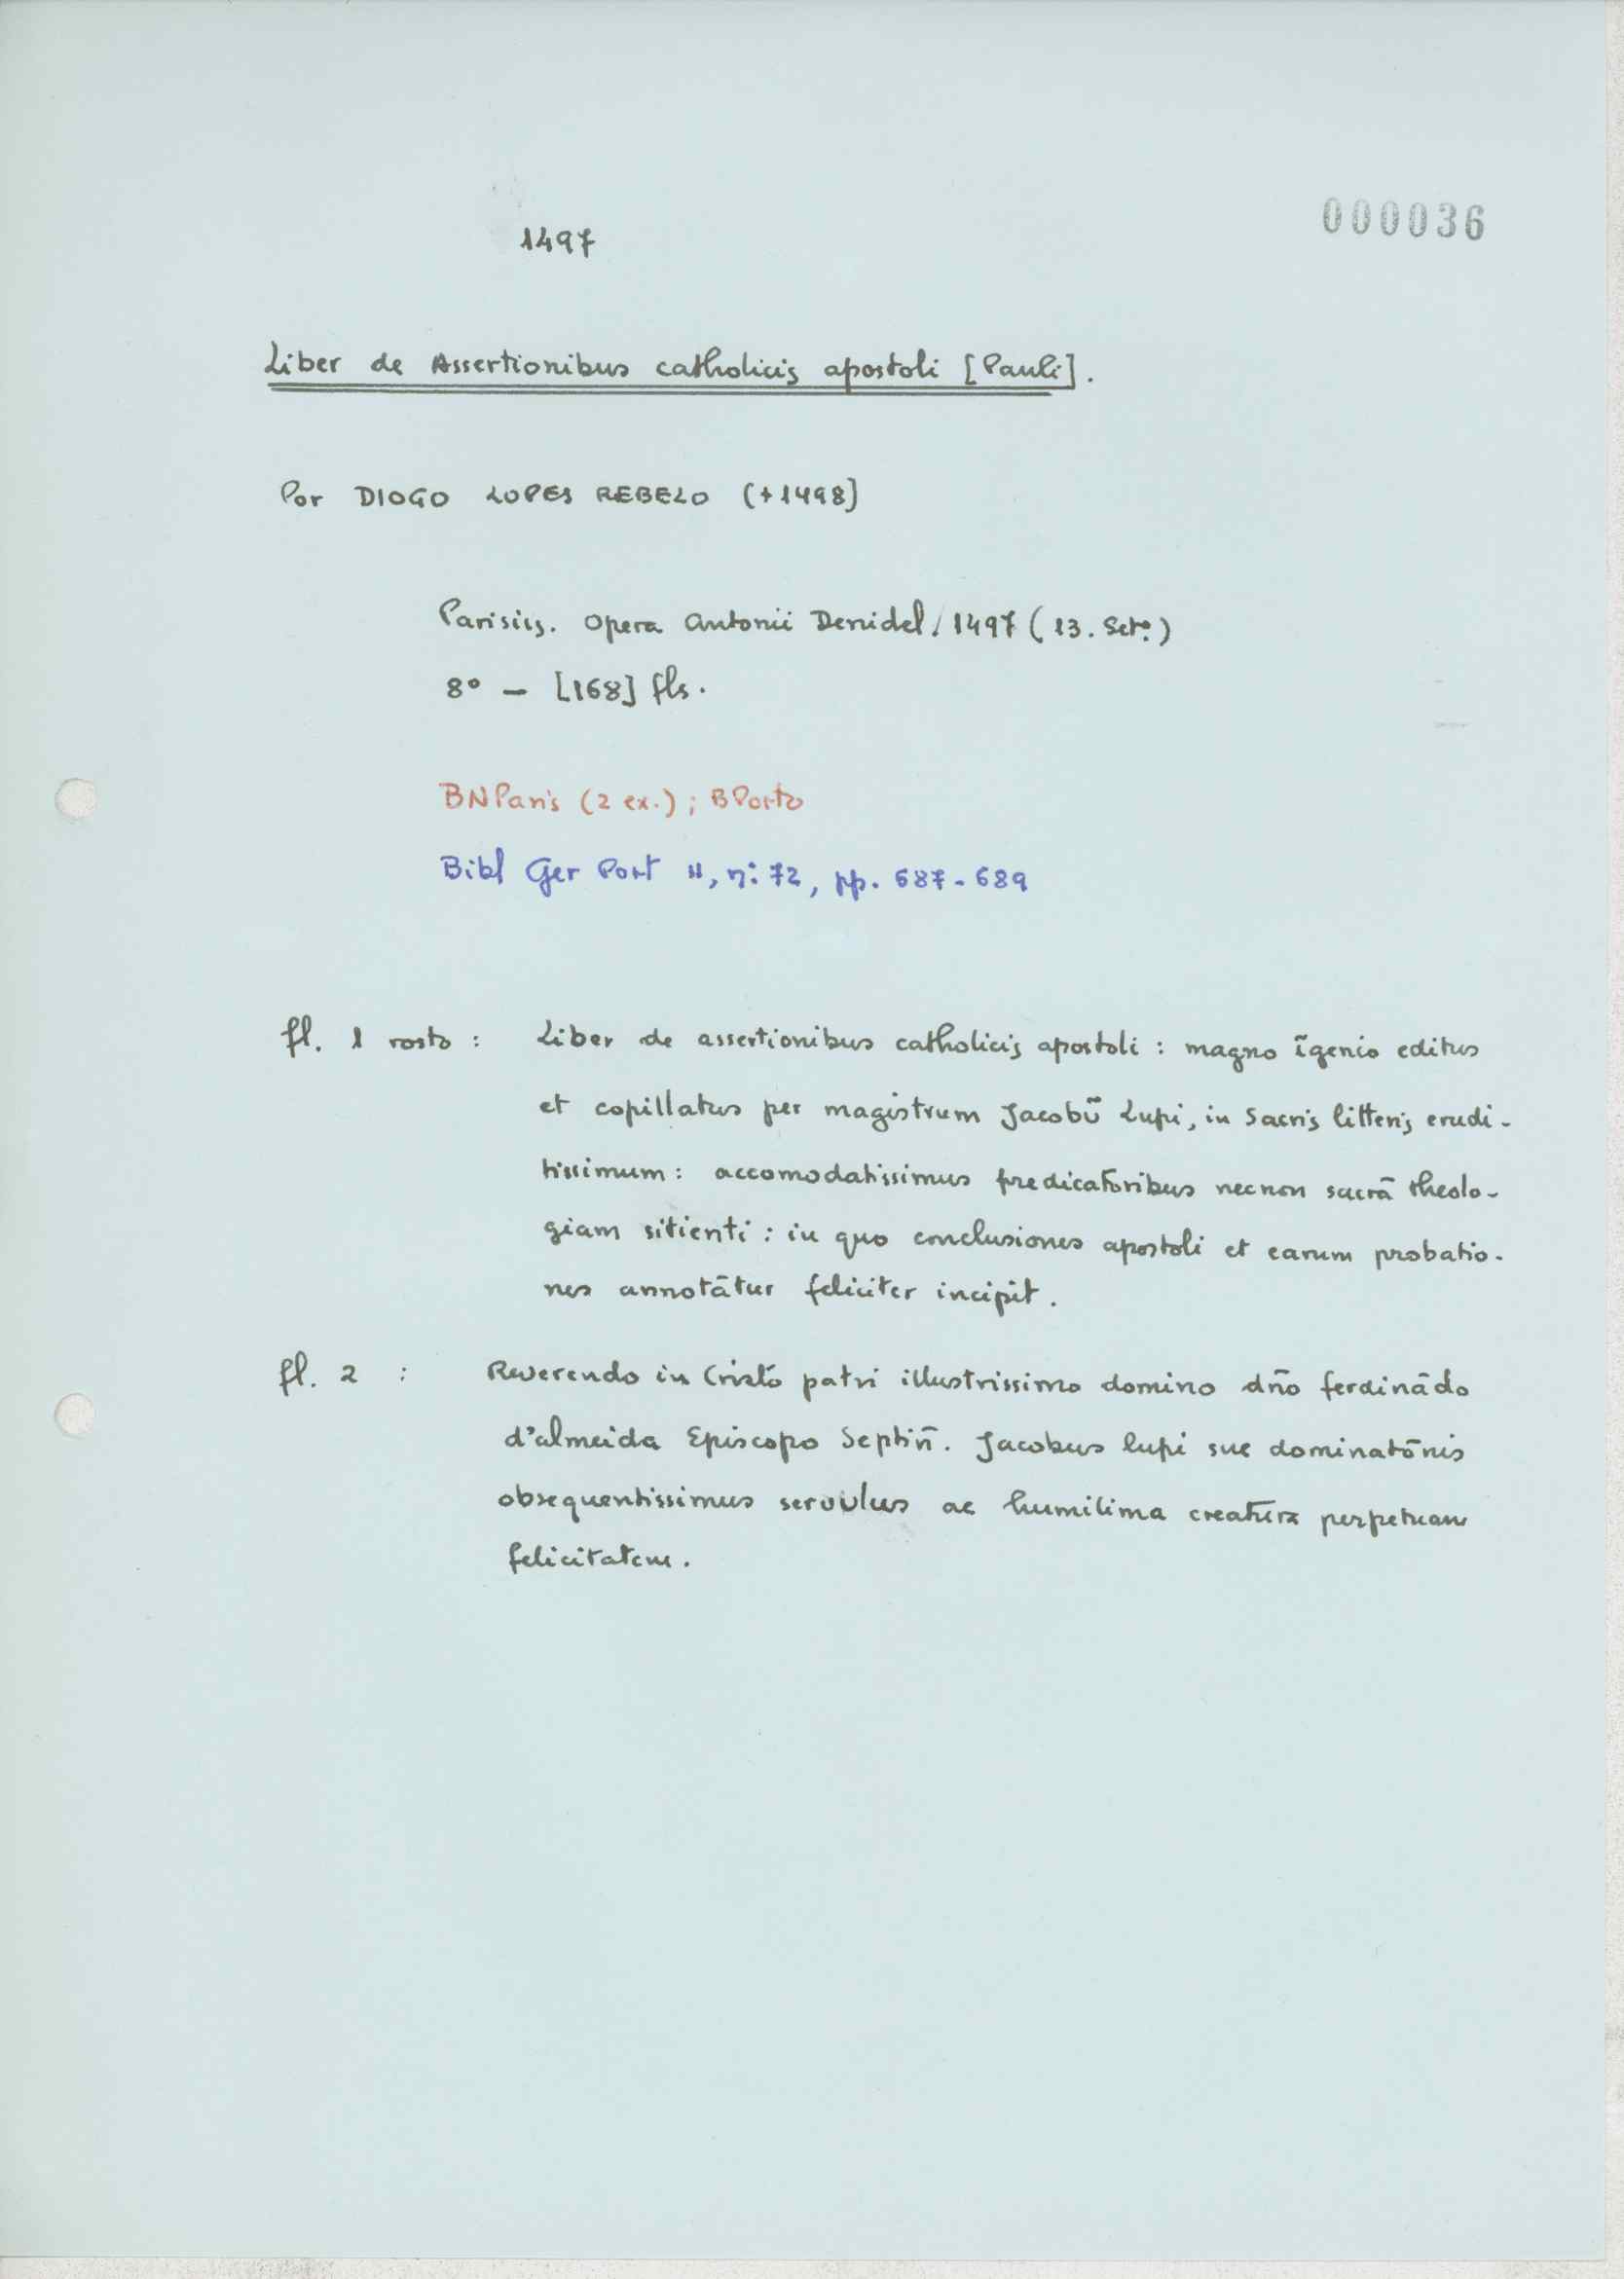 000036
1497
Liber de Assertionibus catholicis apostoli [Pauli].
Por DIOGO LOPES REBELO (+1498)
Parisiis. Opera Antonii Denidel, 1497 (13. Setº)
8º – [168] fls.
BNParis (2 ex.); BPorto
Bibl Ger Port II, nº 72, pp. 687-689
fl. 1 rosto : Liber de assertionibus catholicis apostoli : magno ĩgenio editus
et copillatus per magistrum Jacobũ Lupi, in Sacris litteris erudi-
tissimum : accomodatissimus predicatoribus necnon sacrā theolo-
giam sitienti : in quo conclusiones apostoli et earum probatio-
nes annotātur feliciter incipit.
fl. 2 : Reverendo in Cristo patri illustrissimo domino dño ferdinādo
d'almeida Episcopo Septiñ. Jacobus lupi sue dominatōnis
obsequentissimus servulus ac humilima creatura perpetuam
felicitatem.